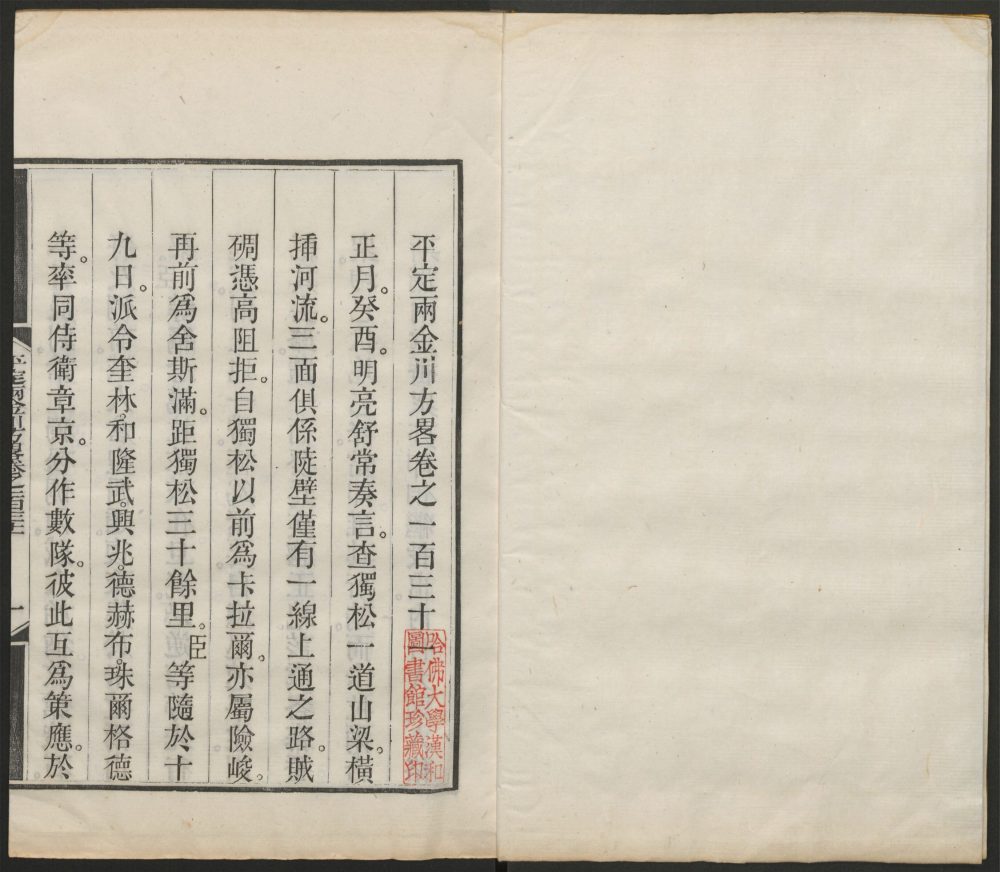 平定兩金川方畧卷之一百三十
正月。癸酉。明亮舒常奏言。查獨松一道山梁。橫
揷河流。三面俱係陡壁僅有一線上通之路。賊
碉憑高阻拒。自獨松以前爲卡拉爾。亦屬險峻。
再前爲舍斯滿。距獨松三十餘里。臣等隨於十
九日。派令奎林。和隆武。興兆。德赫布。珠爾格德
等。率同侍衛章京。分作數隊。彼此互爲策應。於
哈佛大學漢和
圖書館珍藏印